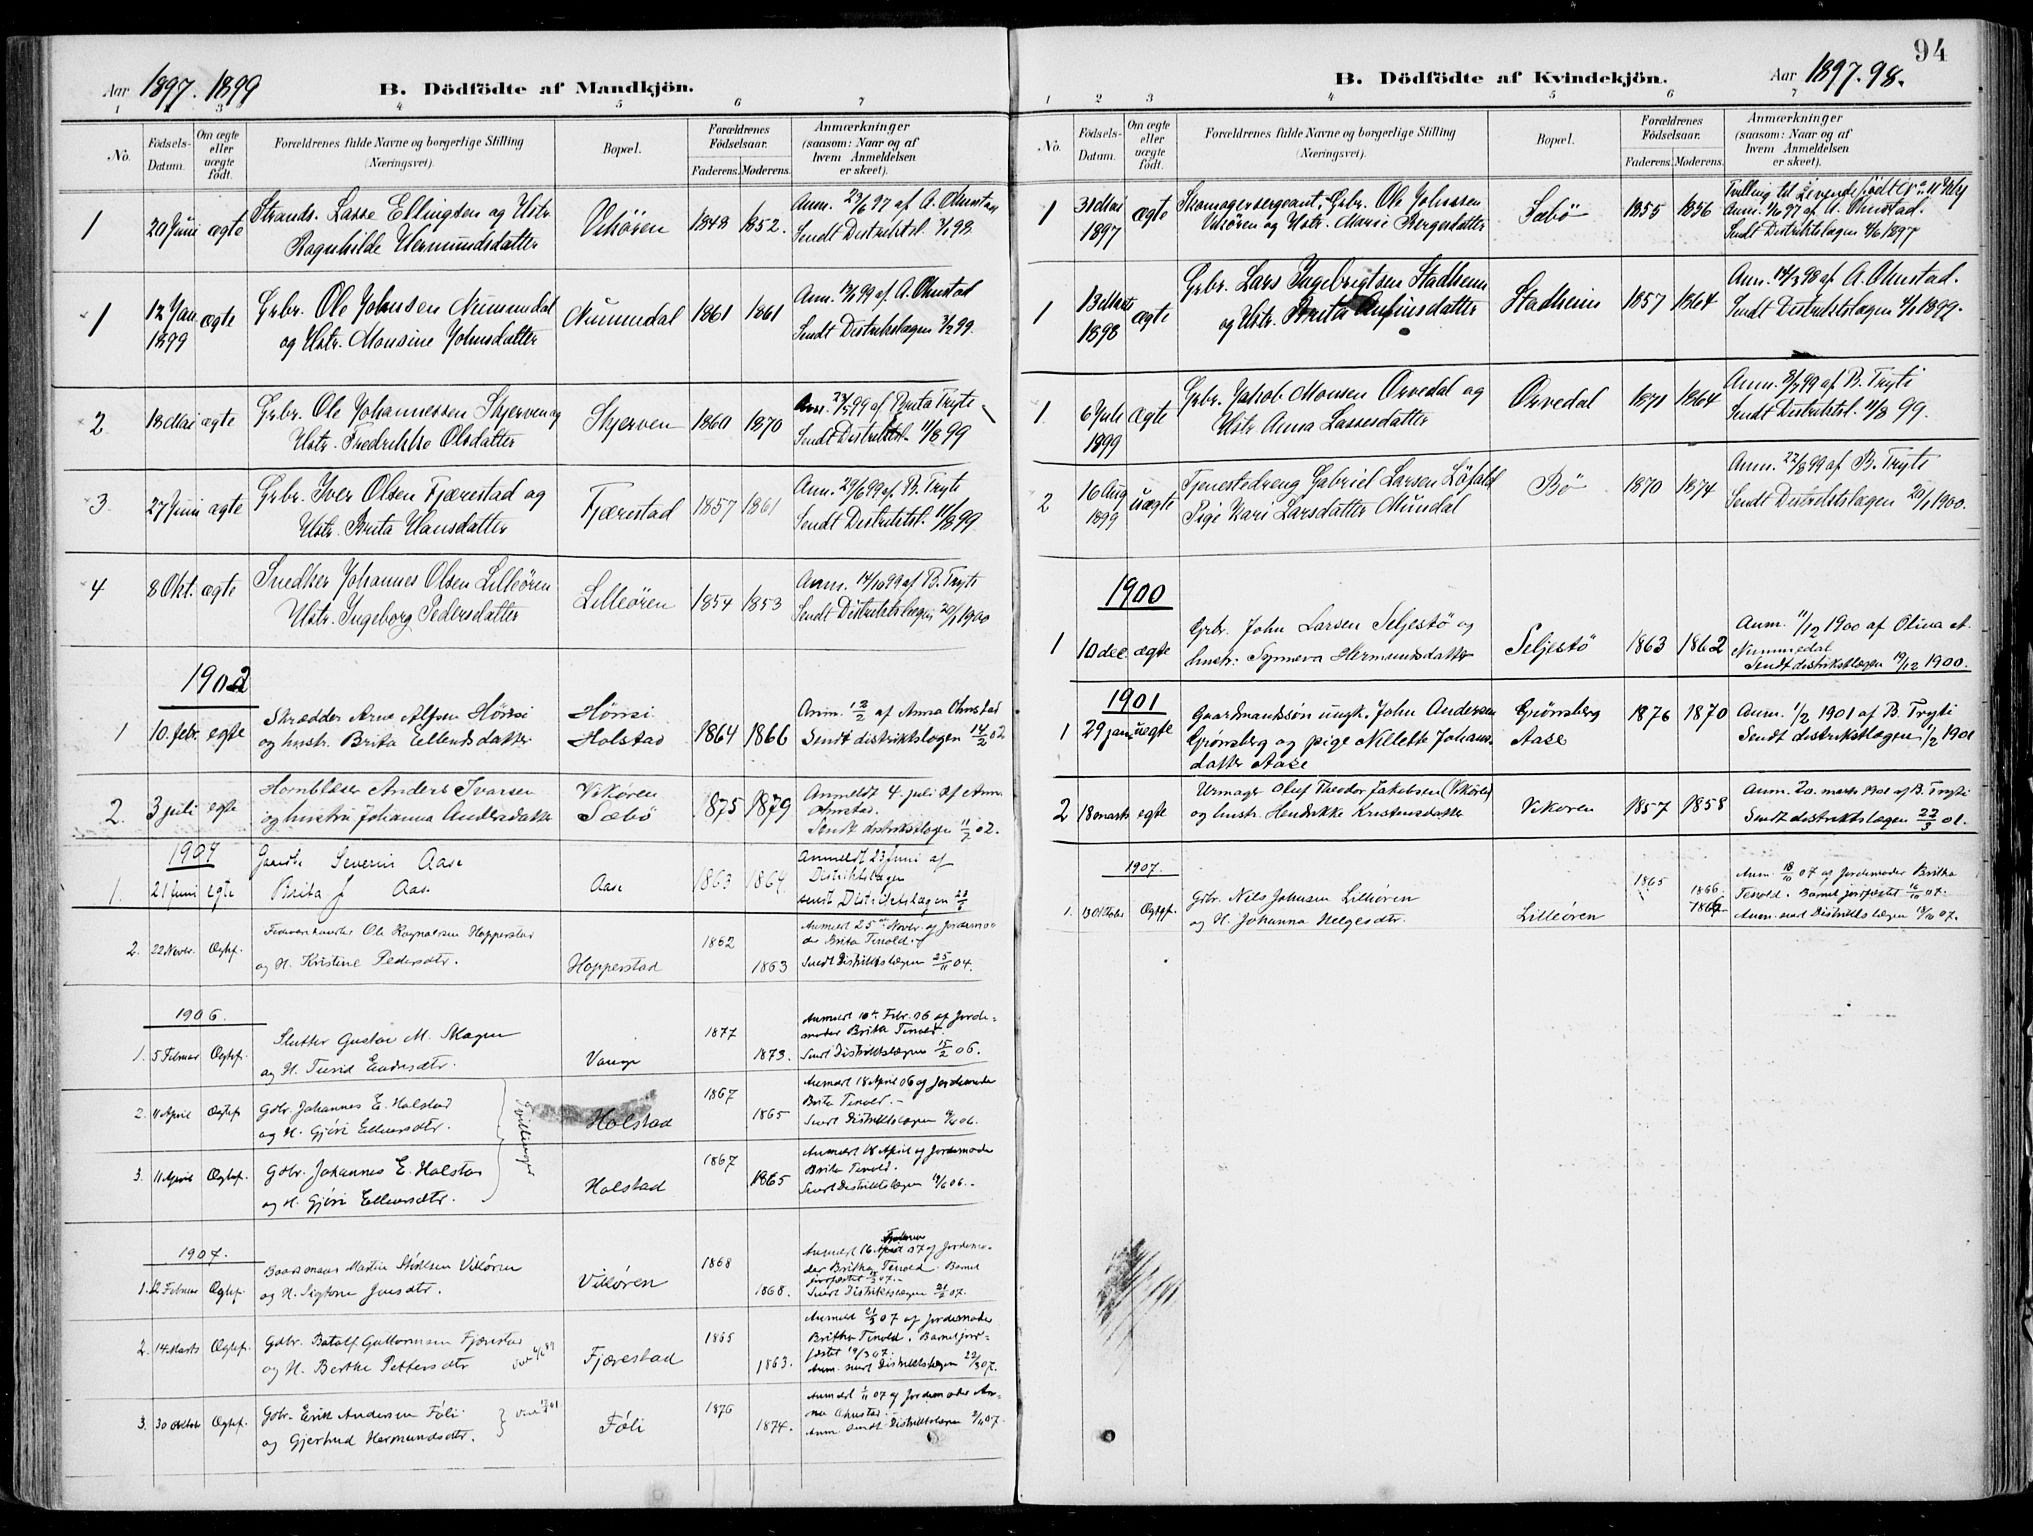 94
Aar 1897. 1899
B. Dödfödte af Mandkjön.
1 3 4 5 6 7
No.
Födsels-
Datum.
Om ægte
eller
uægte
födt.
Forældrenes fulde Navne og borgerlige Stilling
(Næringsvei).
Bopæl.
Forældrenes
Födselsaar.
Faderens. Moderens.
Anmærkninger
(saasom: Naar og af
hvem Anmeldelsen
er skeet).
1 20 Juni ægte Strands. Lasse Ellingsen og Hstr. Vikören 1848 1852. Anm. 23/6 97 af A. Ohnstad
Ragnhilde Hermundsdatter Sendt Distriktsl. 98.
1 12 Jan ægte Grbr. Ole Johnsen Nummedal Nummedal 1861 1861 Anm. 99 af A. Ohnstad
1899 og Hstr. Monsine Johnsdatter Sendt Distriktslægen 99.
2. 18 Mai ægte Grbr. Ole Johannessen Skjerven og Skjerven 1860 1870 Anm. 99 af Brita Tryti
Hstr. Fredrikke Olsdatter Sendt Distriktsl. 11/8 99
3. 27 Juni ægte Grbr. Iver Olsen Fjærestad og Fjærestad 1857 1861 Anm. 29/6 99 af B. Tryti
Hstr. Brita Hansdatter Sendt Distriktsl. 11/8 99.
4 8 Okt. ægte Snedker Johannes Olsen Lilleören Lilleören 1854 1853 Anm. 14/10 99 af B. Tryti
Hstr. Ingeborg Pedersdatter Sendt Distriktslægen 20/1 1900
1902
1 10. febr. egte Skrædder Arne Alfsen Hönsi Hönsi 1864 1866 Anm. 12/2 af Anna Ohnstad
og hustr. Brita Ellendsdatter Holstad Sendt distriktslægen 14/2 02
2. 3 juli egte Hornblæser Anders Ivarsen Vikören 1875 1879 Anmeldt 4. juli af Anna
og hustru Johanna Andersdatter Sæbö Ohnstad.
Sendt distriktslægen 02.
1904
1. 21 Juni egte Severin Aase Aase 1863 1864. Anmeldt 23 Juni af
Brita J Aase Distriktslægen
sendt Distriktslægen 23/6
2. 22 Novbr. Ægtef. Ole Ragnvalsen Hopperstad 1862 Anmeldt 25de Novbr. af Jordemo-
og H. Kristine Pedersdtr. Hopperstad 1863 der Brita Tenold.
Sendt Distriktslægen 25/11 04.
1906.
1. 5 Februar Ægtef. Slutter Gustav M. Skagen 1877 Anmeldt 10de Febr. 06 af Jorde-
og H. Turid Endresdtr. Vange 1873. moder Brita Tenold.
Sendt Distriktslægen 15/2 06.
2. 11 April Ægtef. Gdbr. Johannes E. Holstad Tvillinger 1867 Anmeldt 18 April 06 af Jordemoder
og H. Gjöri Ellensdtr. Holstad 1865 Brita Tenold. -
Sendt Distriktslægen 06.
3. 11 April Ægtef. Gdbr. Johannes E. Holstad 1867 Anmeldt 18 April af Jordemoder
og H. Gjöri Ellensdtr. Holstad 1865 Brita Tenold.
Sendt Distriktslægen 06.
1907.
1. 12 Februar Ægtef. Baadsmand Martin Vikören 1868 Anmeldt 16. Februar 07 af Jordemo-
og H. Jonsdtr. Vikören 1868. der Britha Tenold. Barnet
jordfæstet 07.
Sendt Distriktslægen 21/2 07.
2. 14 Marts Ægtef. Gdbr. Botolf Guttormsen Fjærestad 1865 Anmeldt 21/3 07 af Jordemoder
og H. Berthe Pettersdtr Fjærestad 1863. Britha Tenold. Barnet jord-
fæstet 19/3 07.
Anm. sendt Distriktslægen 22/3 07.
3. 30 Oktob Ægtef. Gdbr. Erik Andersen Föli 1876 Anmeldt 1/11 07 af Jordemoder An-
og Gjertrud Hermundsdtr. Föli 1874. na Ohnstad.
Anm. sendt Distriktslægen 2/11 07.
B. Dödfödte af Kvindekjön.
Aar 1897. 98.
1 2 3 4 5 6 7
No.
Födsels-
Datum.
Om ægte
eller
uægte
födt.
Forældrenes fulde Navne og borgerlige Stilling
(Næringsvei).
Bopæl.
Forældrenes
Födselsaar.
Faderens. Moderens.
Anmærkninger
(saasom: Naar og af
hvem Anmeldelsen
er skeet).
1 31 Mai ægte Skomagersergeant, Grbr. Ole Johnsen Sæbö 1855 1856 Tvilling til Levende födt No 11 Pig
1897 Vikören og Hstr. Marie Bergesdatter Anm. 97 af A. Ohnstad.
Sendt Distriktslægen 1897
1 13 Marts ægte Grbr. Lars Ingebrigtsen Stadheim Stadheim 1857 1864 Anm. 14/3 98 af A. Ohnstad.
1898 og Hstr. Brita Anfinsdatter Sendt Distriktslægen 1899.
1 6 Juli ægte Grbr. Jakob Monsen Orvedal og Orvedal 1871 1864 Anm. 8/7 99 af B. Tryti
1899 Hstr Anna Lassesdatter Sendt Distriktsl. 11/8 99.
2 16 Aug uægte Tjenestedreng Gabriel Larsen Löfald Bö 1870 1874 Anm. 22/8 99 af B. Tryti
1899 Pige Kari Larsdatter Mundal Sendt Distriktslægen 20/1 1900.
1900
1 10 dec. ægte Grbr. John Larsen Seljestö og Seljestö 1863 1862 Anm. 11/12 1900 af Olina A.
hustr: Synneva Hermundsdatter Nummedal
Sendt distriktslægen 19/12 1900.
1901
1 29 jan. uegte Gaardmandssön ungk. John Andersen Grönsberg 1876 1870 Anm. 1/2 1901 af B. Tryti
Grönsberg og pige Nillette Johans- Aase Sendt distriktslægen 1/2 1901
datter Aase
2 18 marts egte Urmager Oluf Theodor Jakobsen (Vikören) Vikoren 1857 1858 Anm. 20. marts 1901 af B. Tryti
og hustr. Hendrikke Kristensdatter Sendt distriktslægen 22/3 01.
1907.
1. 13 Oktober Ægtef. Gdbr. Nils Johnsen Lilleören Lilleören 1865 1866 Anm. 18/10 07 af Jordemoder Britha
og H. Johanna Helgesdtr. Tenold. Barnet jordfæstet 16/10 07.
Anm. sendt Distriktslægen 07.